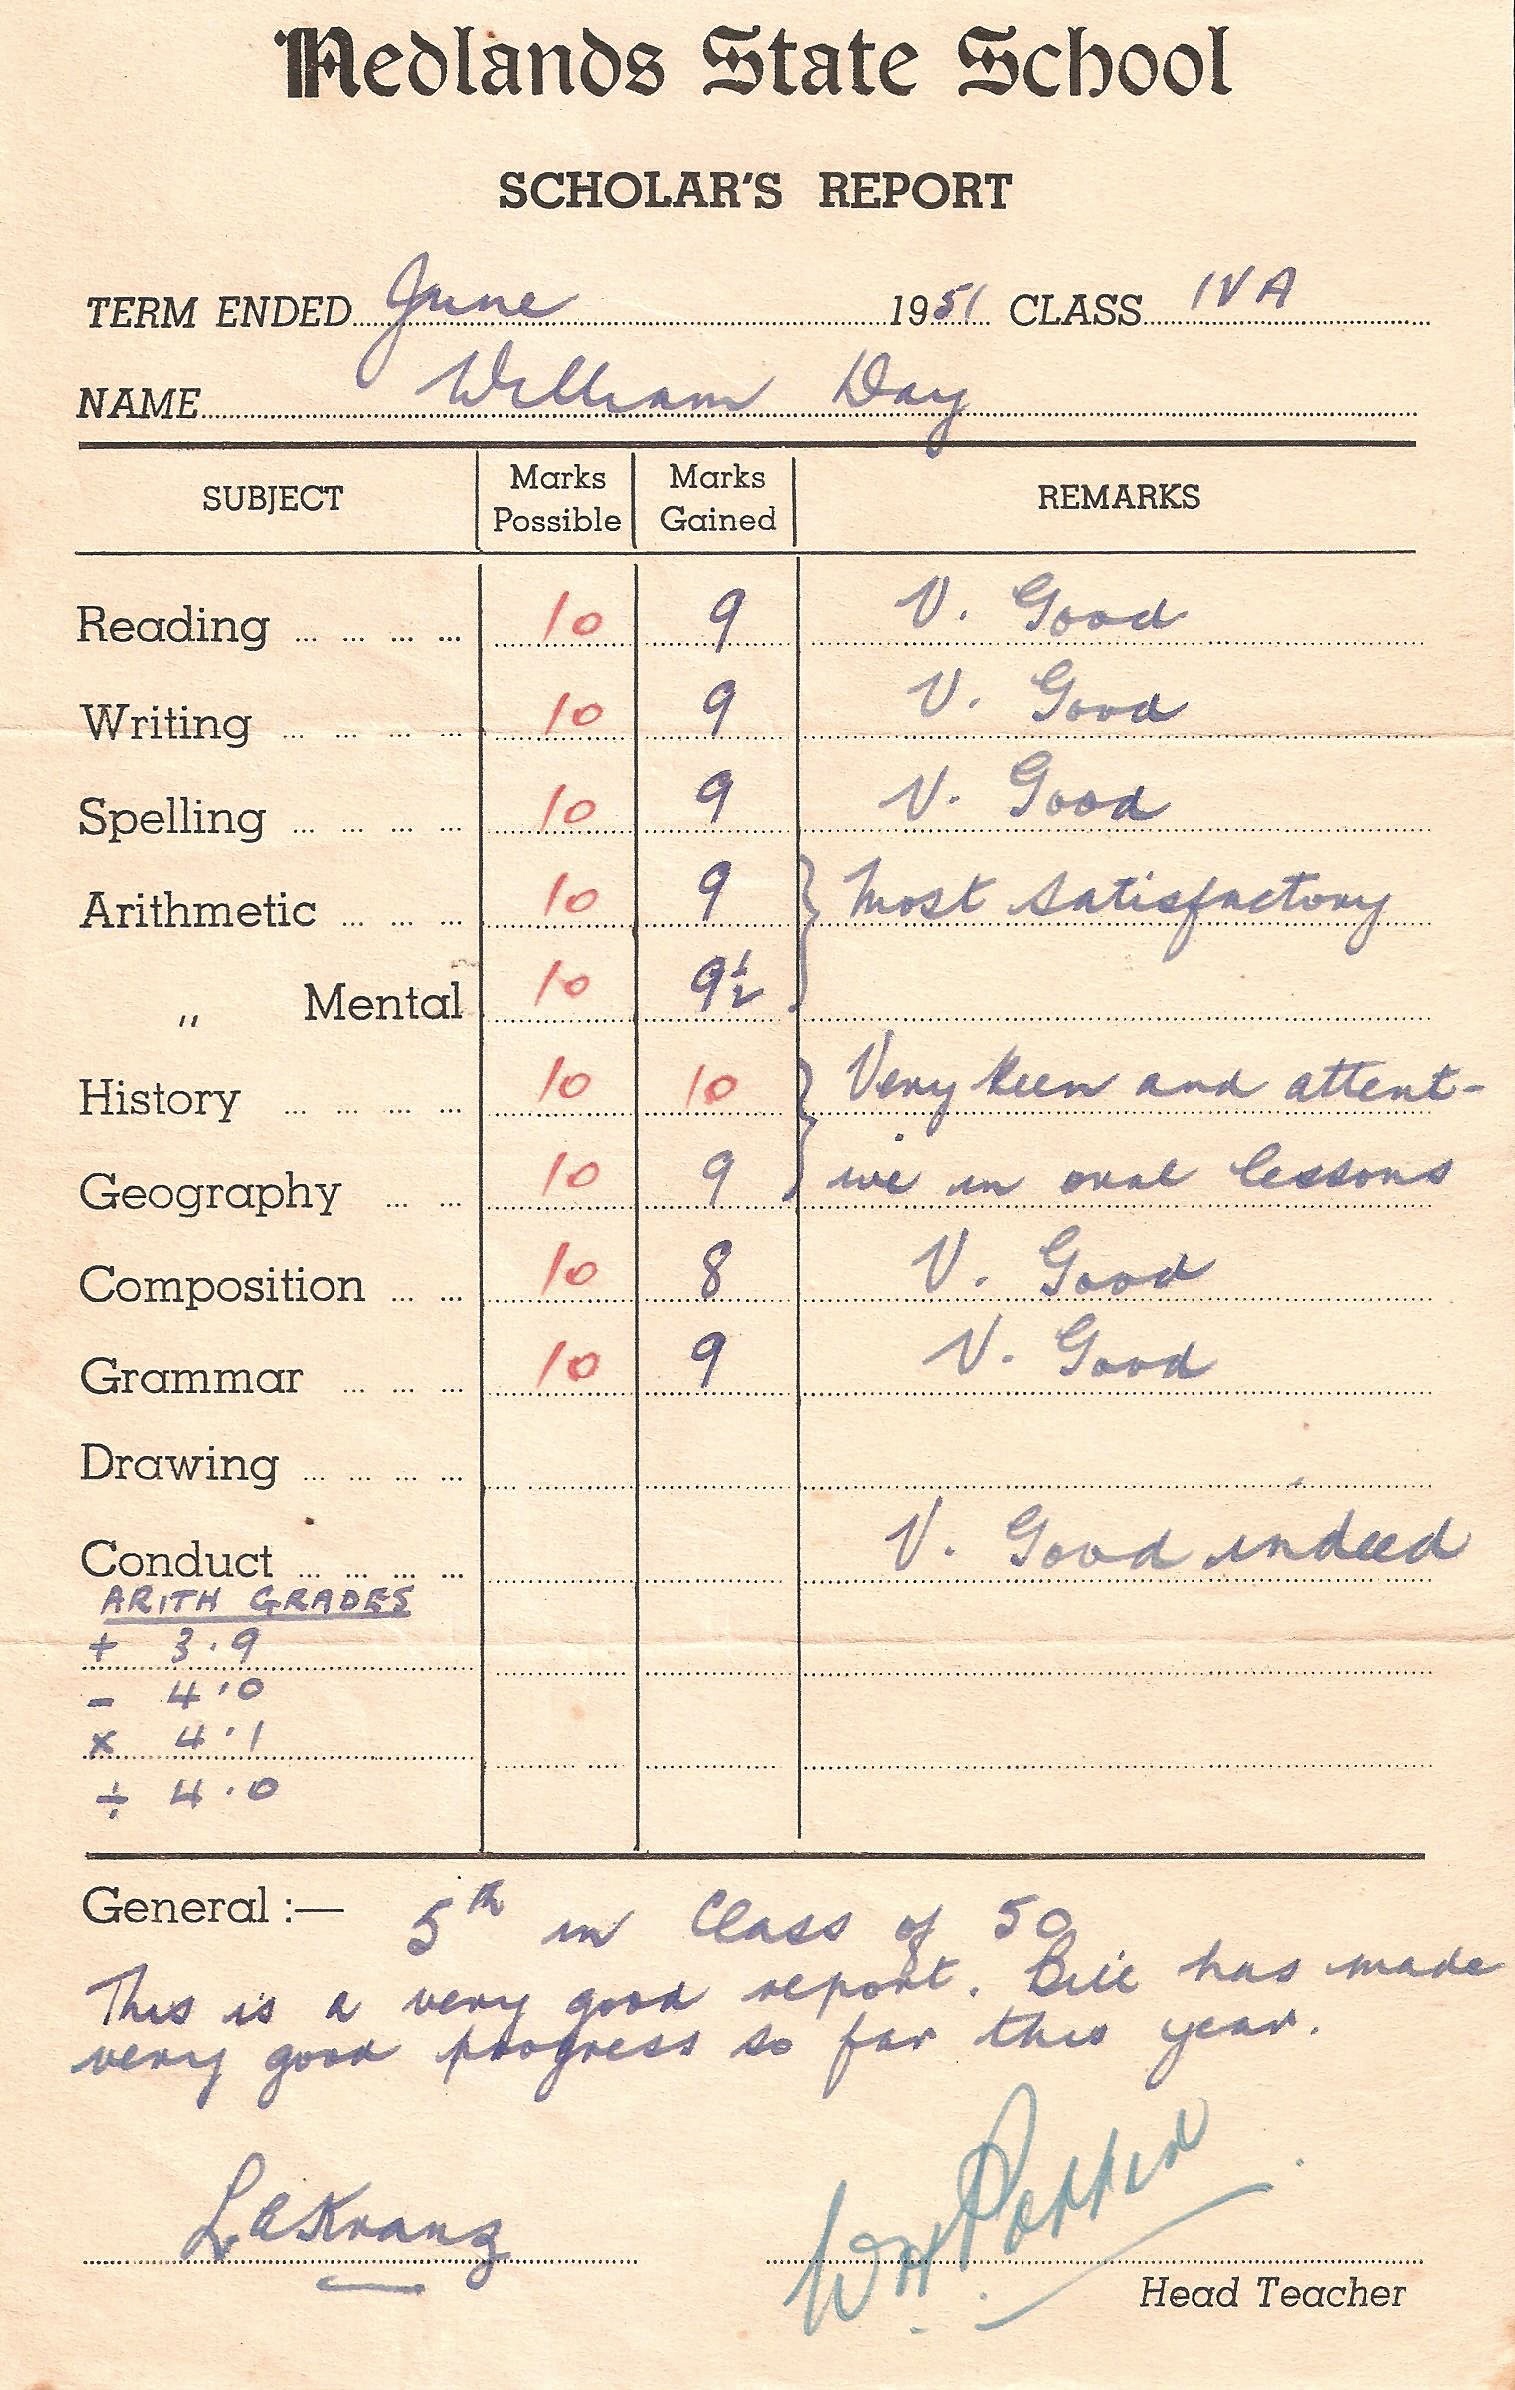 Nedlands State School
SCHOLAR'S REPORT
TERM ENDED June 1951 CLASS IVA
NAME William Day
SUBJECT Marks Possible Marks Gained REMARKS
Reading ... ... ... ... 10 9 V. Good
Writing ... ... ... ... 10 9 V. Good
Spelling ... ... ... ... 10 9 V. Good
Arithmetic ... ... ... 10 9 Most satisfactory
" Mental 10 9½
History ... ... ... ... 10 10 Very keen and attent-
Geography ... ... 10 9 ive in oral lessons
Composition ... ... 10 8 V. Good
Grammar ... ... ... 10 9 V. Good
Drawing ... ... ... ...
Conduct ... ... ... ... V. Good indeed
ARITH GRADES
+ 3.9
- 4.0
x 4.1
÷ 4.0
General :— 5th in Class of 50
This is a very good report. Bill has made
very good progress so far this year.
L C Kranz
Head Teacher